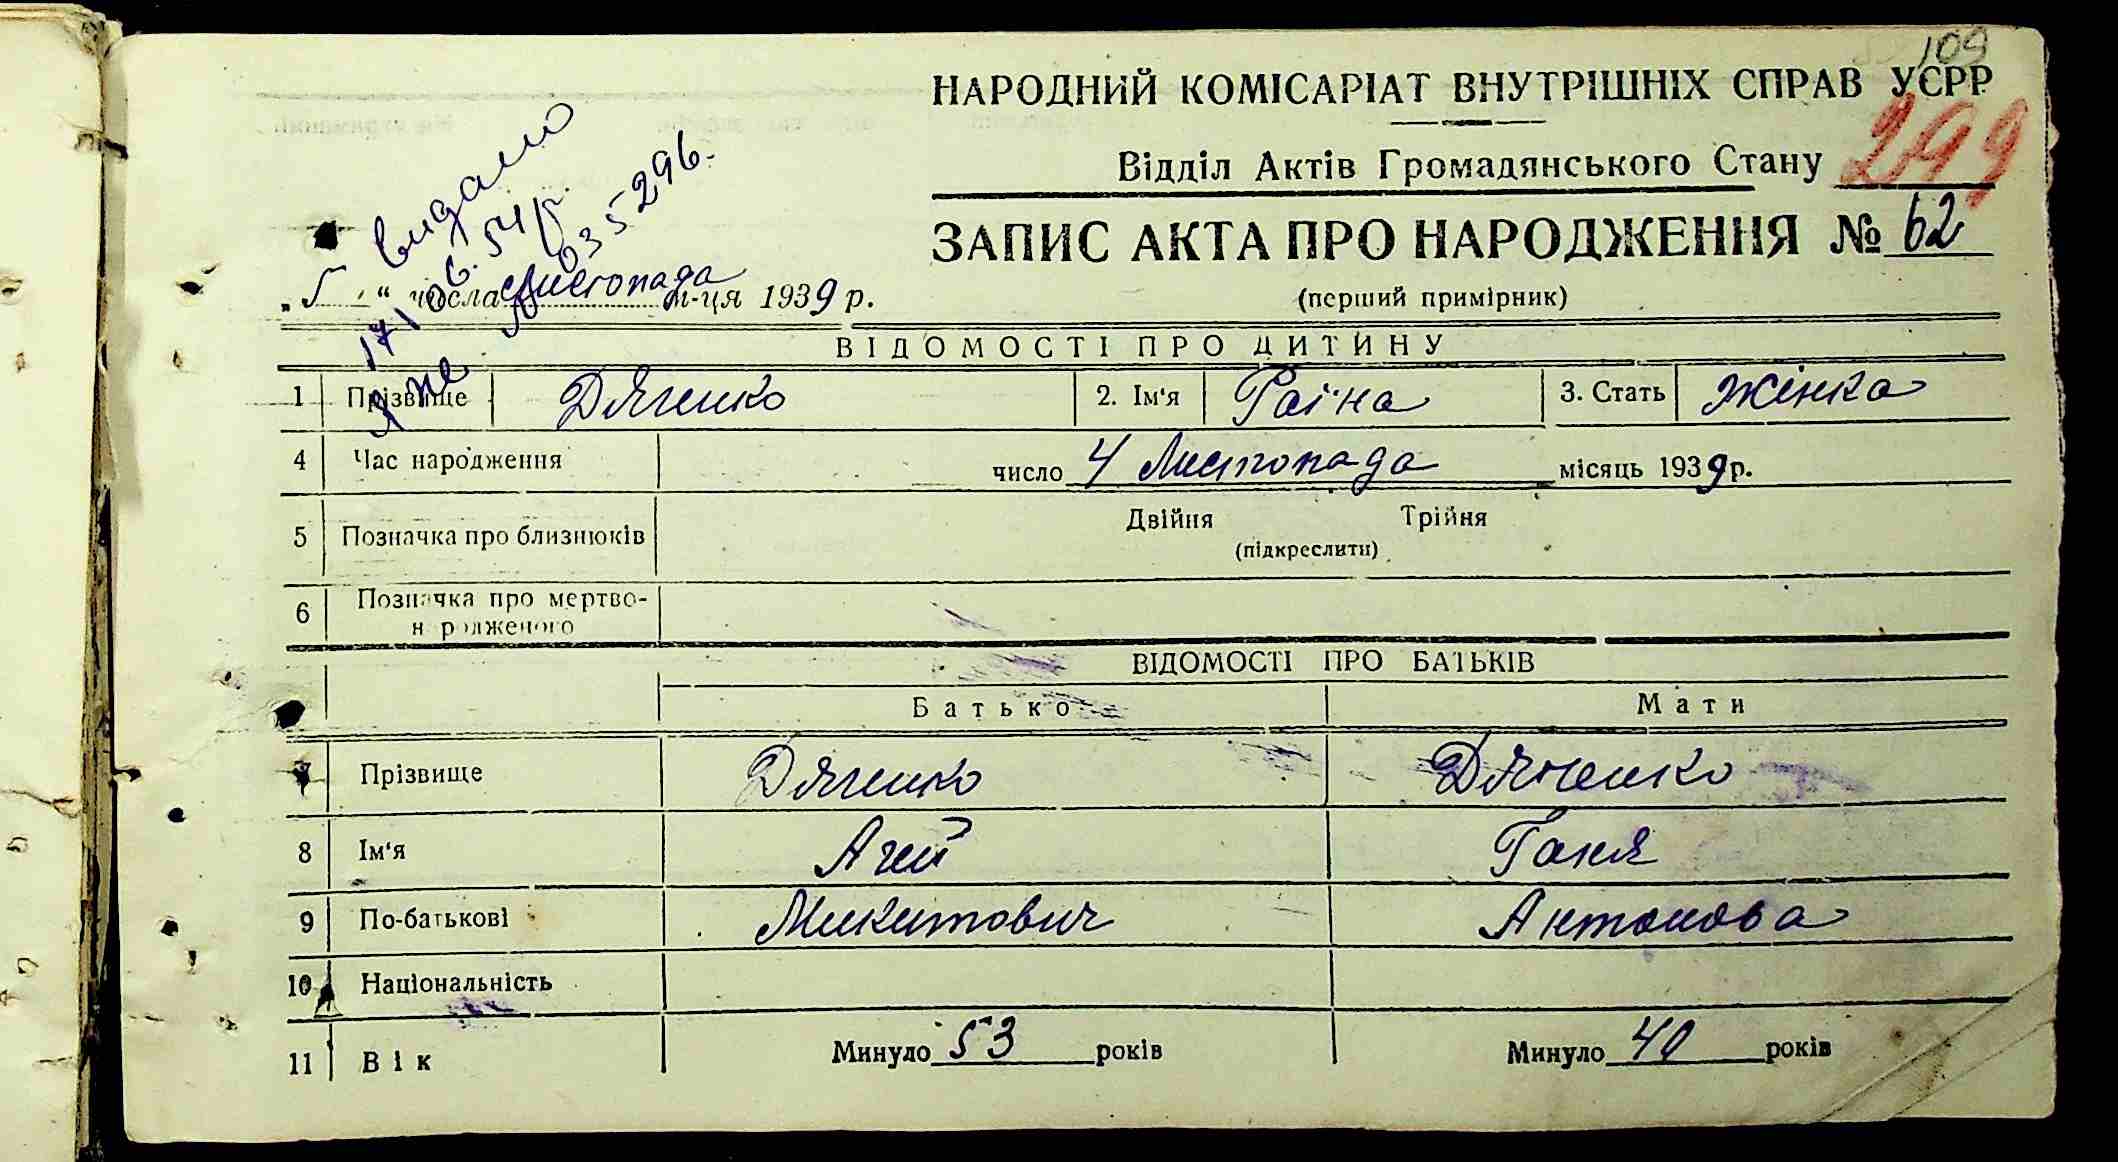 109
НАРОДНИЙ КОМІСАРІАТ ВНУТРІШНІХ СПРАВ УСРР
Відділ Актів Громадянського Стану 299
ЗАПИС АКТА ПРО НАРОДЖЕННЯ № 62
(перший примірник)
видано
17/06.54р.
035296.
„5“ числа Листопада м-ця 1939 р.
ВІДОМОСТІ ПРО ДИТИНУ
1 Прізвище Дяченко 2. Ім'я Раїна 3. Стать Жінка
4 Час народження число 4 Листопада місяць 1939 р.
5 Позначка про близнюків Двійня Трійня
(підкреслити)
6 Позначка про мертво-
народженого
ВІДОМОСТІ ПРО БАТЬКІВ
Батько Мати
7 Прізвище Дяченко Дяченко
8 Ім'я Агей Ганя
9 По-батькові Микитович Антонова
10 Національність
11 Вік Минуло 53 років Минуло 40 років